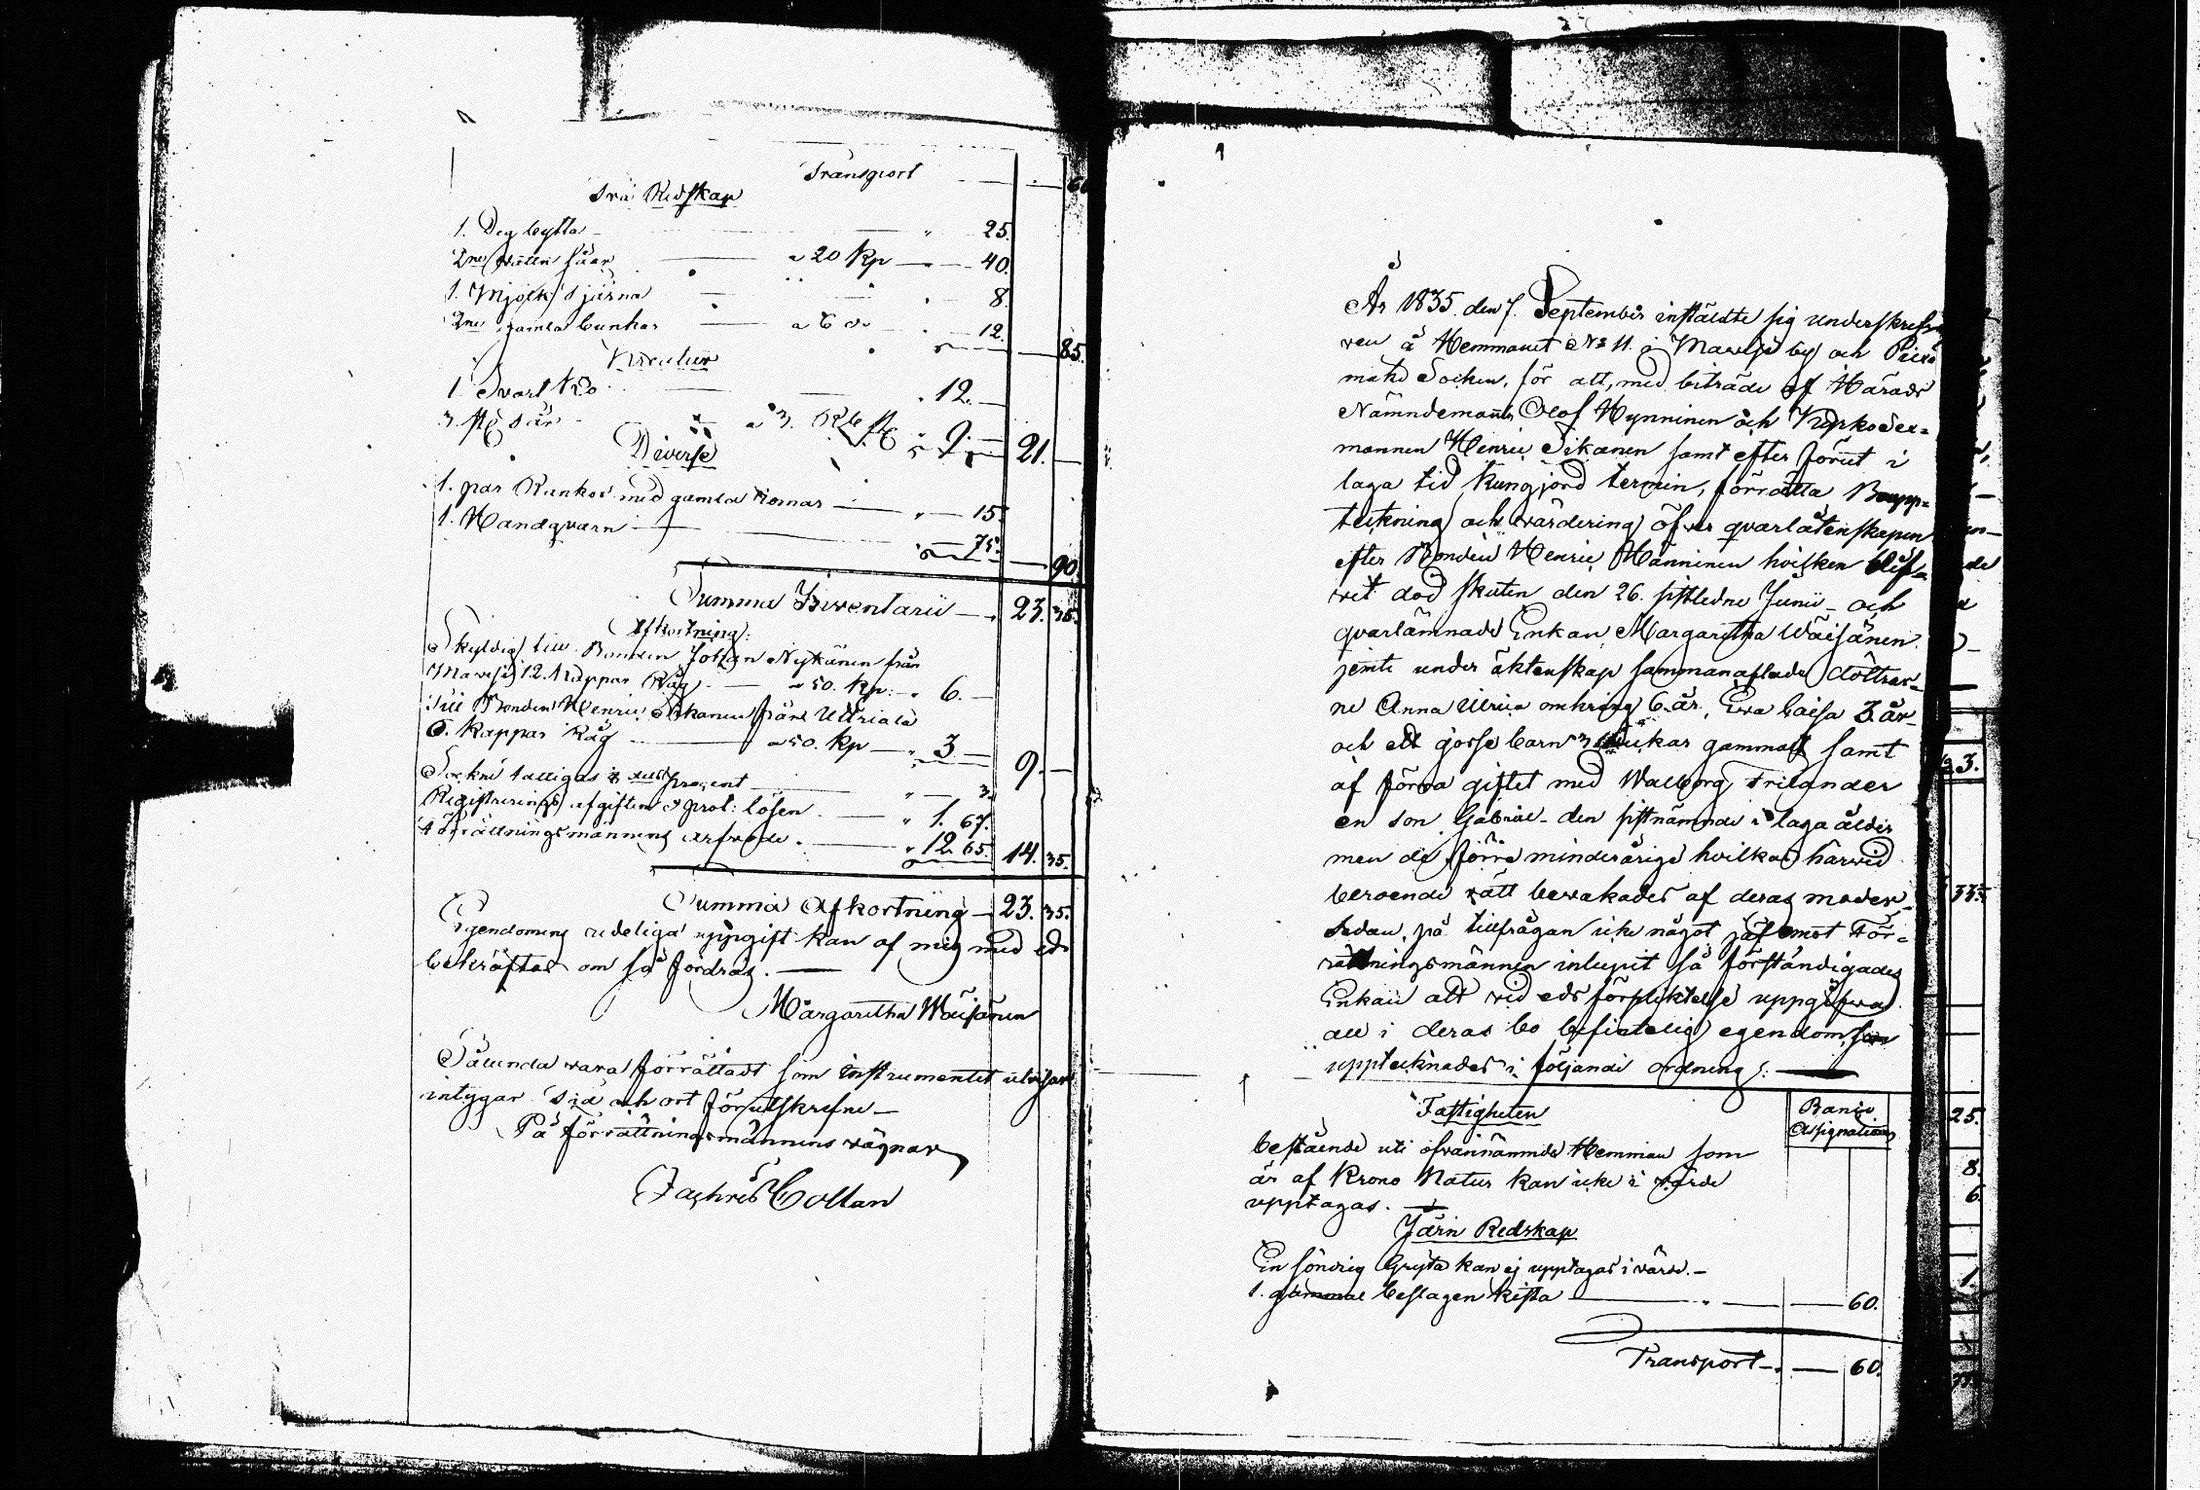 Transport — 60
Trä Redskap
1. Deg bytta — " — 25.
2ne watten såar — a 20 kp — " — 40.
1. Mjölk tjärna — " — 8.
2ne gamla bunkar — a 6 do " — 12. — 85.
Kreatur
1 Svart Ko — " 12. —
3. st får — a 3. Rb st " 9. — 21. —
Diverse
1. par Rankor med gamla remar — " — 15.
1. Handqvarn — " — 75. — 90.
Summa Inventarii — 23. 35.
Afkortning:
Skyldig till Bonden Johan Nykänen från
12. Kappar Råg — a 50. kp: " 6. —
Till Bonden Henric Tikanen från
6. Kappar Råg — a 50. kp — " 3 — 9. —
Sockne fattigas procent — " — 3.
Registrerings afgiften & prot: lösen — " 1. 67.
Förrättningsmännens arfwode. — " 12. 65. 14. 35.
Summa Afkortning — 23. 35.
Egendomens redeliga uppgift kan af mig med ed
bekräftas om så fordras. —
Margaretha Wäisänen
Sålunda wara förrättadt som instrumentet utwisar
intygar Tid och ort förutskrefne —
På Förrättningsmännens vägnar
Collan
År 1835. den 7. September instäldte sig underskrefne
ven å Hemmanet No 11. i by och
mäki Socken, för att, med biträde af Härads
Nämndemannen Olof Hynninen och
mannen Henric Tikanen samt efter förut i
laga tid kungjord termin, förrätta Boupp=
teckning och wärdering öfver qvarlåtenskapen
efter Bonden Henric Hänninen hvilken blif=
wit död skuten den 26. sistledne Junii — och
qvarlämnade Enkan Margaretha Wäisänen
jemte under äktenskap sammanaflade döttrar=
ne Anna Ulrica omkring 6. år, Ewa Caisa 3 år
och ett gosse barn 3 wickor gammalt samt
af förra giftet med Walborg Frilander
en son Gabriel — den sistnämnde i laga ålder
men de förra minderåriga hvilkas härwid
beroende rätt bewakades af deras moder.
Sedan, på tillfrågan icke något jäf emot För=
rättningsmännen inlupit så förständigades
Enkan att vid eds förpliktelse uppgifwa
all i deras bo befintelig egendom, som
upptecknades i följande ordning: —
Fastigheten
Banco Assignationer
bestående uti ofvannämnde Hemman som
är af Krono Natur kan icke i wärde
upptagas. —
Järn Redskap
En söndrig Gryta kan ej upptagas i wärde. —
1. gammal beslagen kista — " — 60.
Transport — 60.
3.
335
25.
8.
6.
1.